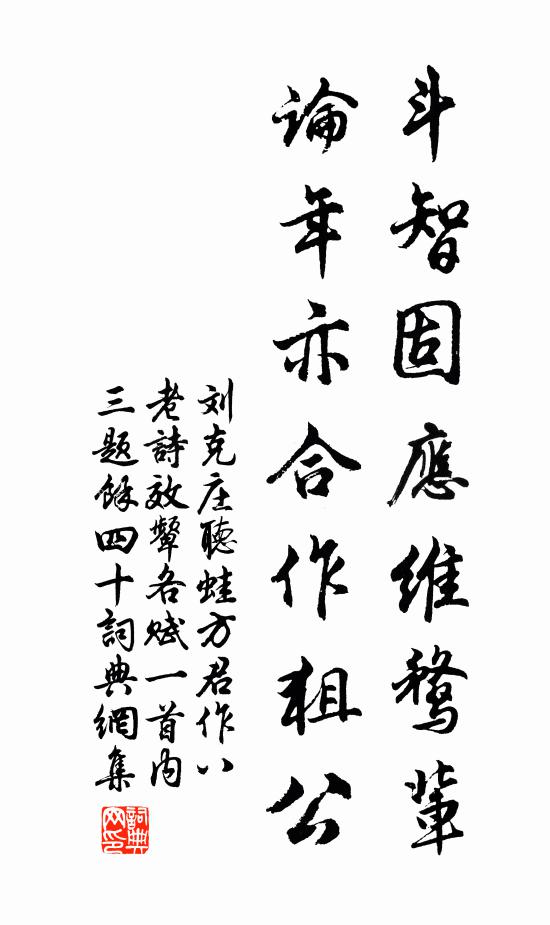 斗智固應維鶩輩
論年亦合作狙公
刘克庄聽蛙方君作八
老詩效顰各賦一首内
三題餘四十詞典網集
詞典
网印